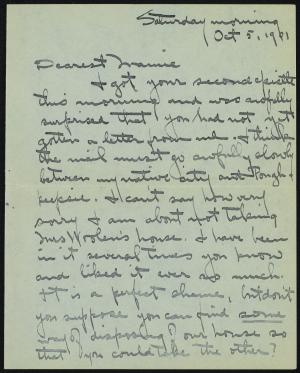 Saturday morning
Oct 5, 1901
Dearest Frannie
I got your second epistle
this morning and was awfully
surprised that you had not yet
gotten a letter from me. I think
the mail must go awfully slowly
between my native city and Pough-
keepsie. I can't say how very
sorry I am about not taking
Mrs Woolen's house. I have been
in it several times you know
and liked it ever so much.
It is a perfect shame, but don't
you suppose you can find some
way of disposing of our house so
that you could take the other?